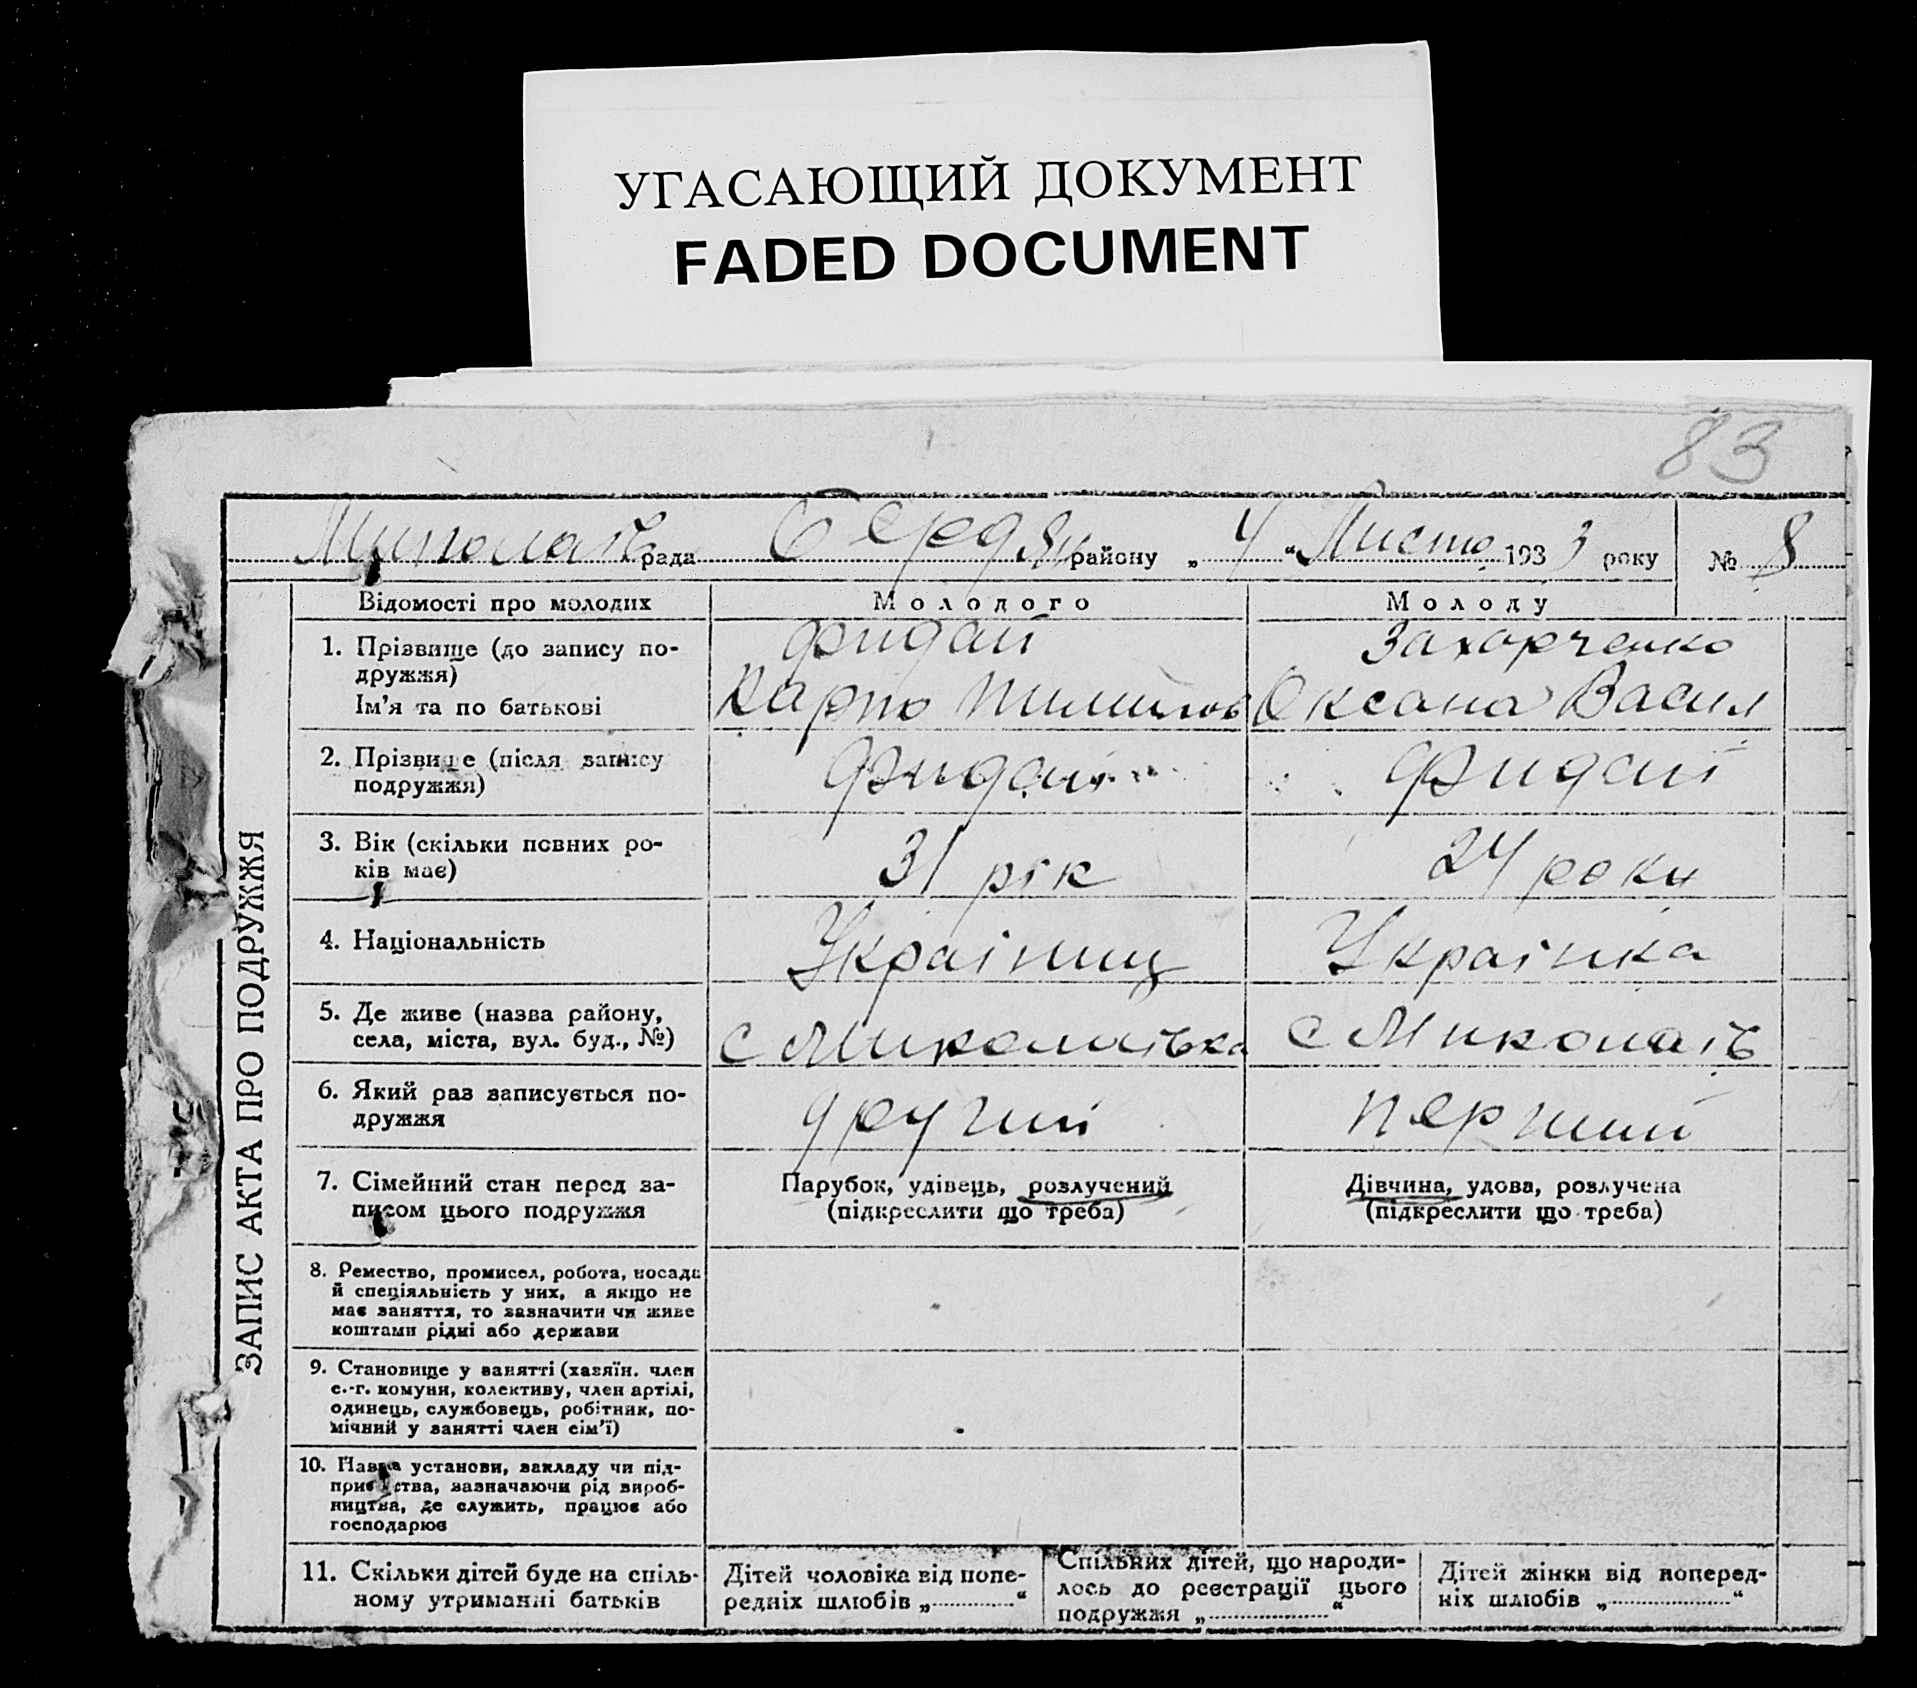 УГАСАЮЩИЙ ДОКУМЕНТ
FADED DOCUMENT
83
рада району „ 4 “ Листо 1933 року № 8
ЗАПИС АКТА ПРО ПОДРУЖЖЯ
Відомості про молодих Молодого Молоду
1. Прізвище (до запису по-
дружжя)
Ім'я та по батькові
Фидай
Карпо Пилипов
Захарченко
Оксана Васил
2. Прізвище (після запису
подружжя)
Фидай Фидай
3. Вік (скільки повних ро-
ків має)
31 рік 24 роки
4. Національність Українец Українка
5. Де живе (назва району,
села, міста, вул. буд., №)
с Миколаївка с Миколаїв
6. Який раз записується по-
дружжя
другий перший
7. Сімейний стан перед за-
писом цього подружжя
Парубок, удівець, розлучений
(підкреслити що треба)
Дівчина, удова, розлучена
(підкреслити що треба)
8. Ремество, промисел, робота, посада
й спеціяльність у них, а якщо не
має заняття, то зазначити чи живе
коштами рідні або держави
9. Становище у занятті (хазяїн. член
с.-г. комуни, колективу, член артілі,
одинець, службовець, робітник, по-
мічний у занятті член сім'ї)
10. Назва установи, закладу чи під-
приємства, зазначаючи рід вироб-
ництва, де служить, працює або
господарює
11. Скільки дітей буде на спіль-
ному утриманні батьків
Дітей чоловіка від попе-
редніх шлюбів „ “
Спільних дітей, що народи-
лось до реєстрації цього
подружжя „ “
Дітей жінки від поперед-
ніх шлюбів „ “